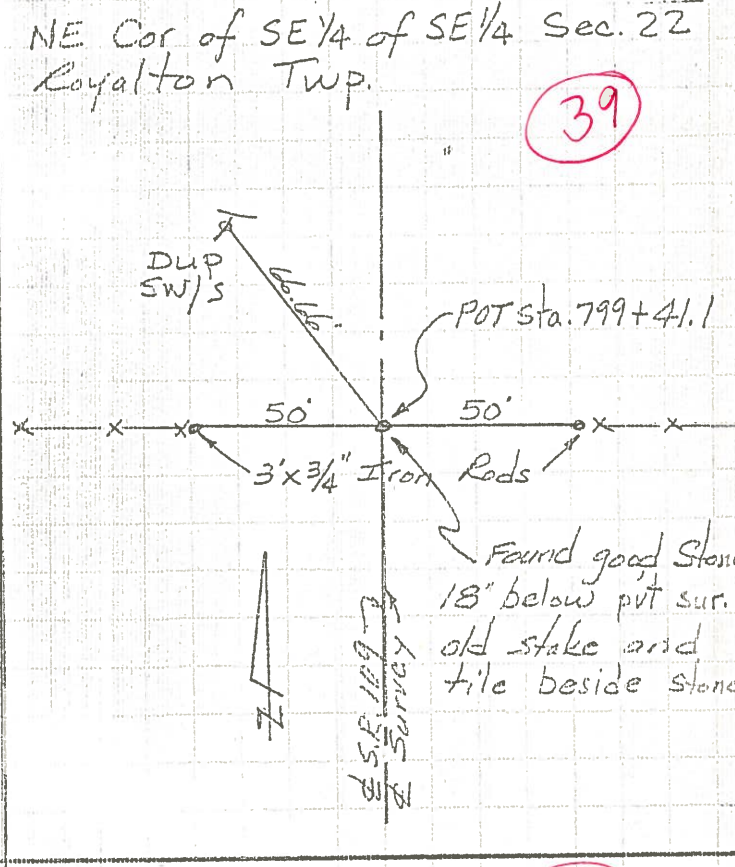 NE Cor of SE 1/4 of SE 1/4 Sec. 22
Royalton Twp.
39
Dup
SW/S
66.66'
POT Sta. 799+41.1
50'
50'
3'x3/4" Iron Rods
Found good Stone
18" below pvt sur.
old stake and
tile beside stone
℄ S.R. 109
℄ Survey